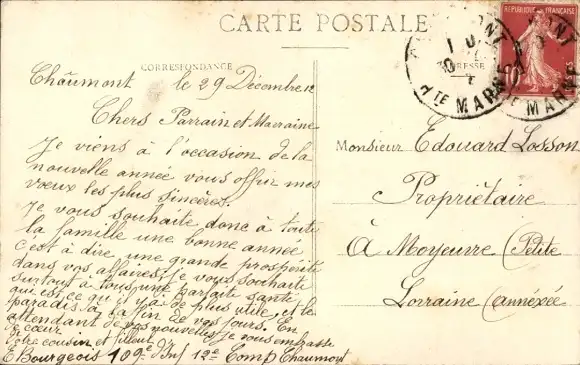 CARTE POSTALE
CORRESPONDANCE
RÉPUBLIQUE FRANÇAISE
10
Hte MARNE
Chaumont le 29 Décembre 12
Chers Parrain et Marraine
Je viens à l'occasion de la
nouvelle année vous offrir mes
vœux les plus sincères.
Je vous souhaite donc à toute
la famille une bonne année
c'est à dire, une grande prospérité
dans vos affaires, je vous souhaite
surtout à tous une parfaite santé
qui est ce qu'il y a de plus utile, et le
paradis à la fin de vos jours. En
attendant de vos nouvelles je vous embrasse
de cœur
Votre cousin et filleul
E Bourgeois 109e d'Inf 12e Comp Chaumont
Monsieur Edouard Losson
Propriétaire
À Moyeuvre (Petite
Lorraine (annéxée